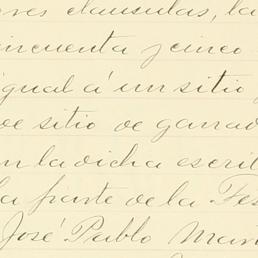 clausulas, la
cincuenta y cinco
igual á un sitio y
de sitio de ganad
n la dicha escrit
la parte de la Tes
José Pablo Mar